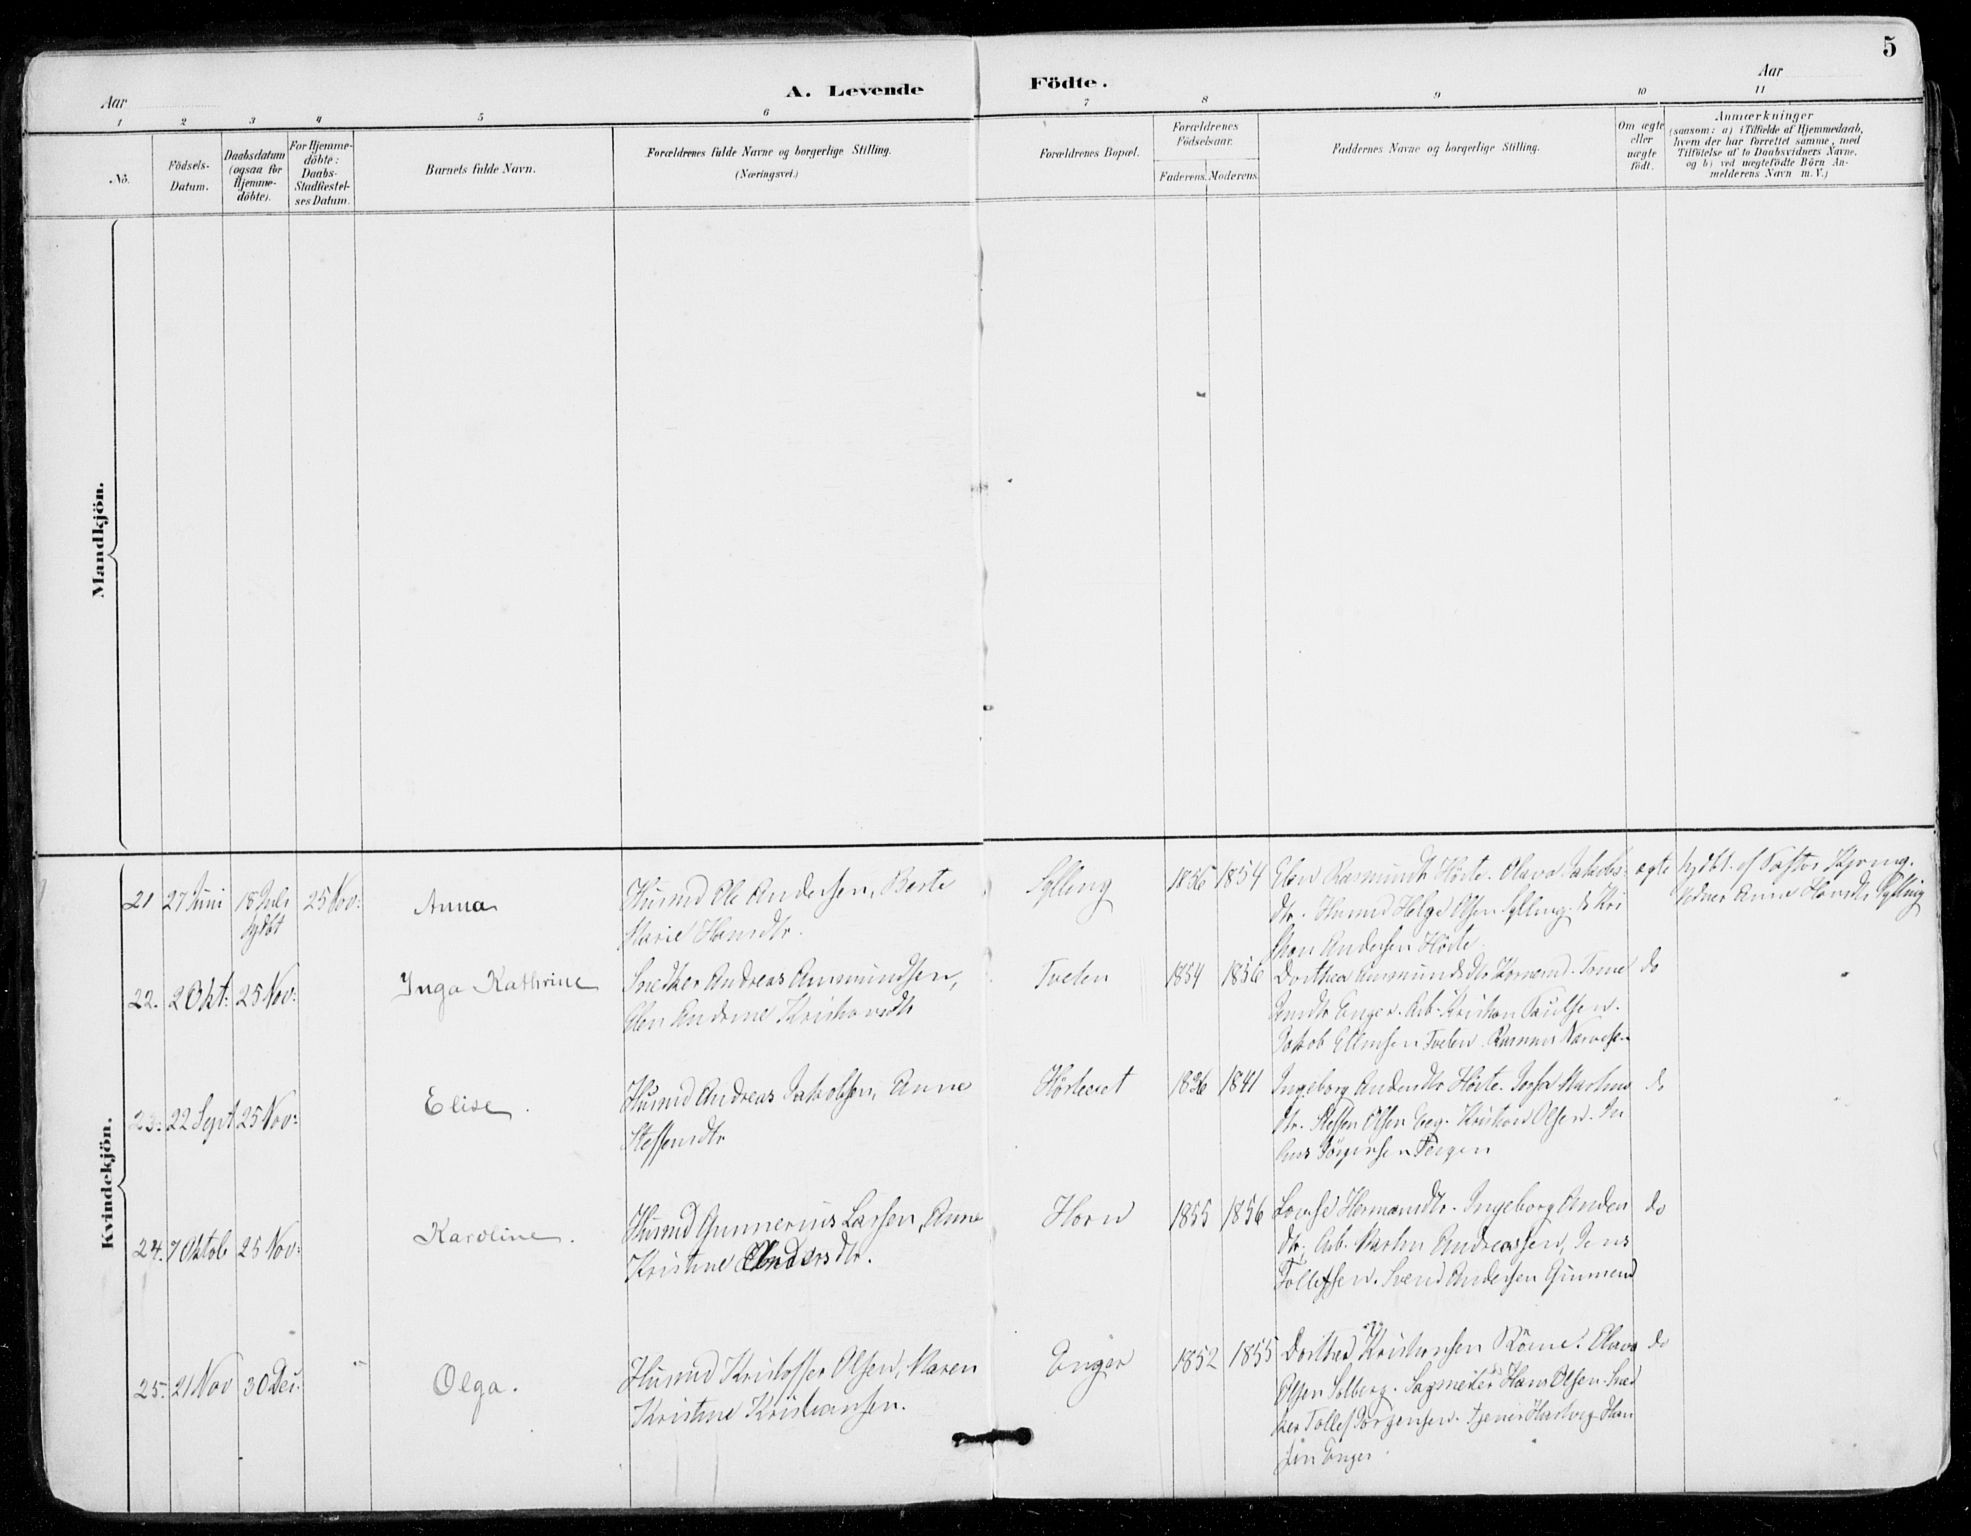 5
Aar
A. Levende
Födte.
Aar
1 2 3 4 5 6 7 8 9 10 11
No.
Födsels-
Datum.
Daabsdatum
(ogsaa for
Hjemme-
döbte).
For Hjemme-
döbte:
Daabs-
Stadfæstel-
ses Datum.
Barnets fulde Navn.
Forældrenes fulde Navne og borgerlige Stilling.
(Næringsvei.)
Forældrenes Bopæl.
Forældrenes
Födselsaar.
Faderens. Moderens.
Faddernes Navne og borgerlige Stilling.
Om ægte
eller
uægte
födt.
Anmærkninger
(saasom: a) i Tilfælde af Hjemmedaab,
hvem der har forrettet samme, med
Tilföielse af to Daabsvidners Navne,
og b) ved uægtefödte Börn An-
melderens Navn m. V.)
Mandkjön.
Kvindekjön.
21 27 Juni 15 Juli 25 Nov:
hjdbt
Anna
Husmd Ole Andersen, Berte
Marie Hansdtr.
Sylling
1856 1854
Elen Rasmundtr Hörte. Olava Jakobs
dtr. Husmd Helge Olsen Sylling.
Andersen Hörte
ægte
hjdbt. af Pastor
Anne Sylling
22. 2 Okt: 25 Nov:
Inga Kathrine
Snedker Andreas Ammundsen,
Elen Andrine Kristiansdtr
Tveten
1854 1856
Dorthea Ammundsdtr
Enger. Arb. Kristian Paulsen.
Jakob Ellensen Tveten. Rasmus
do
23. 22 Sept 25 Nov:
Elise.
Husmd Andreas Jakobsen, Anne
Steffensdtr
1836 1841
Ingeborg Andersdtr Hörte.
dtr. Steffen Olsen Eeg. Kristian Olsen.
Jörgensen
do
24. 7 Oktob 25 Nov:
Karoline.
Husmd Gunnerius Larsen, Anne
Kristine Andersdtr.
Horn
1855 1856
Lovise Hermansdtr. Ingeborg Anders
dtr, Arb. Martin Andreassen, Jens
Tollefsen. Svend Andersen
do
25. 21 Nov 30 Dec.
Olga.
Husmd Kristoffer Olsen, Maren
Kristine Kristiansen.
Enger
1852 1855
Dorthea Kristiansen Röine. Olava
Olsen Solberg. Sagmester Hans Olsen. Sned
ker Tollef Jörgensen. Tjener Hartvig Han
sen Enger.
do